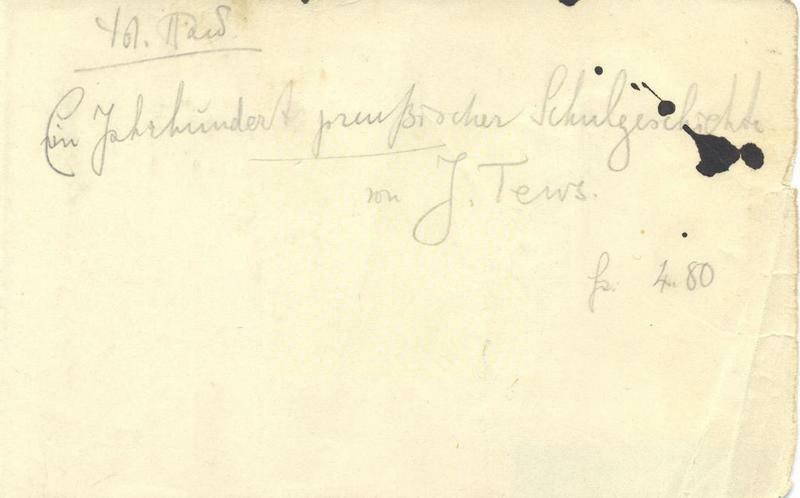 Ein Jahrhundert preußischer Schulgeschichte
von J. Tews.
4.80